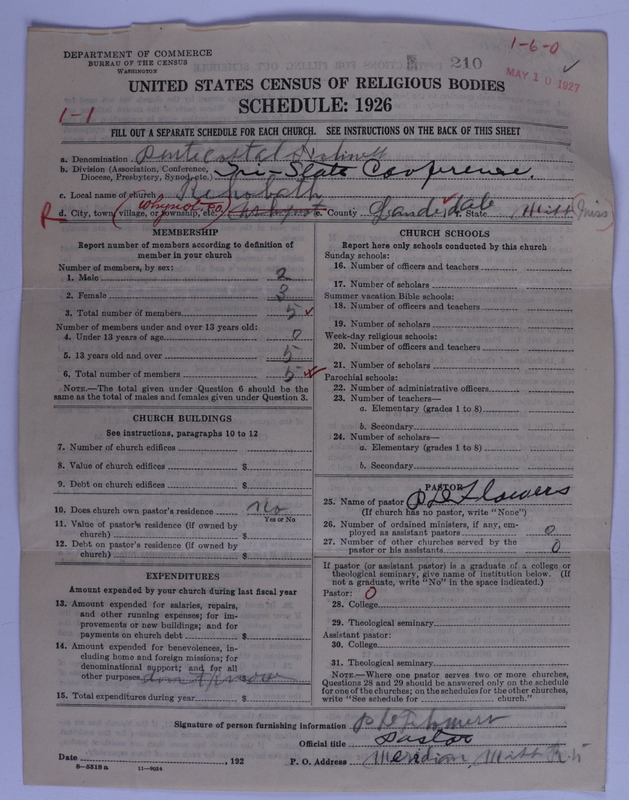 1-6-0
DEPARTMENT OF COMMERCE
BUREAU OF THE CENSUS
WASHINGTON
210
MAY 10 1927
UNITED STATES CENSUS OF RELIGIOUS BODIES
SCHEDULE: 1926
1-1
FILL OUT A SEPARATE SCHEDULE FOR EACH CHURCH. SEE INSTRUCTIONS ON THE BACK OF THIS SHEET
a. Denomination Pentecostal Holiness
b. Division (Association, Conference, Diocese, Presbytery, Synod, etc.) Tri-State Conference.
c. Local name of church
R d. City, town, village, or township, etc. (Whynot e. County Lauderdale f. State Miss)
MEMBERSHIP
Report number of members according to definition of member in your church
Number of members, by sex:
1. Male 2
2. Female 3
3. Total number of members 5
Number of members under and over 13 years old:
4. Under 13 years of age 0
5. 13 years old and over 5
6. Total number of members 5
NOTE.—The total given under Question 6 should be the same as the total of males and females given under Question 3.
CHURCH BUILDINGS
See instructions, paragraphs 10 to 12
7. Number of church edifices
8. Value of church edifices $
9. Debt on church edifices $
10. Does church own pastor's residence No
Yes or No
11. Value of pastor's residence (if owned by church) $
12. Debt on pastor's residence (if owned by church) $
EXPENDITURES
Amount expended by your church during last fiscal year
13. Amount expended for salaries, repairs, and other running expenses; for improvements or new buildings; and for payments on church debt $
14. Amount expended for benevolences, including home and foreign missions; for denominational support; and for all other purposes dont know
15. Total expenditures during year $
CHURCH SCHOOLS
Report here only schools conducted by this church
Sunday schools:
16. Number of officers and teachers
17. Number of scholars
Summer vacation Bible schools:
18. Number of officers and teachers
19. Number of scholars
Week-day religious schools:
20. Number of officers and teachers
21. Number of scholars
Parochial schools:
22. Number of administrative officers
23. Number of teachers—
a. Elementary (grades 1 to 8)
b. Secondary
24. Number of scholars—
a. Elementary (grades 1 to 8)
b. Secondary
PASTOR
25. Name of pastor Flowers
(If church has no pastor, write "None")
26. Number of ordained ministers, if any, employed as assistant pastors 0
27. Number of other churches served by the pastor or his assistants 0
If pastor (or assistant pastor) is a graduate of a college or theological seminary, give name of institution below. (If not a graduate, write "No" in the space indicated.)
Pastor: 0
28. College
29. Theological seminary
Assistant pastor:
30. College
31. Theological seminary
NOTE.—Where one pastor serves two or more churches, Questions 28 and 29 should be answered only on the schedule for one of the churches; on the schedules for the other churches, write "See schedule for church."
Signature of person furnishing information
Official title Pastor
Date , 192 P. O. Address Meridian, Miss
8-5518a 11-9024